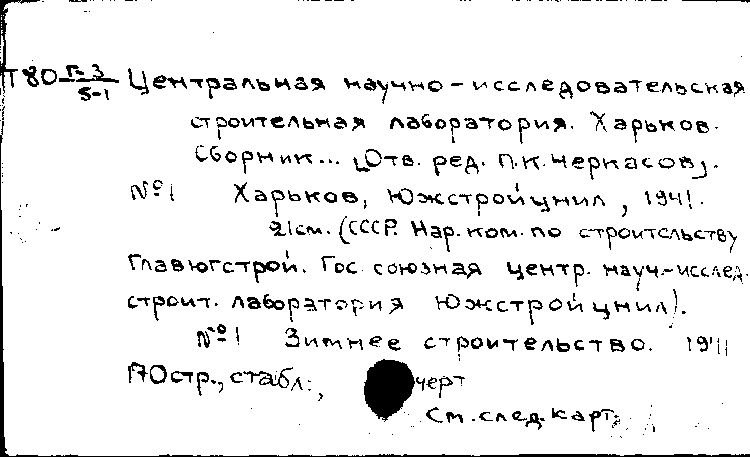 Т80 Г-3/5-1 Центральная научно-исследовательская
строительная лаборатория. Харьков.
Сборник... [Отв. ред. П.К. Черкасов].
№1 Харьков, Южстройцнил, 1941.
21см. (СССР. Нар. ком. по строительству
Главюгстрой. Гос. союзная центр. науч.-исслед.
строит. лаборатория Южстройцнил).
№1 Зимнее строительство. 1941
170стр., стабл.,
черт
См. след. карт.